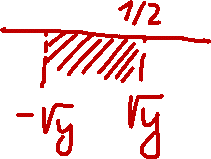 1/2
-√y √y